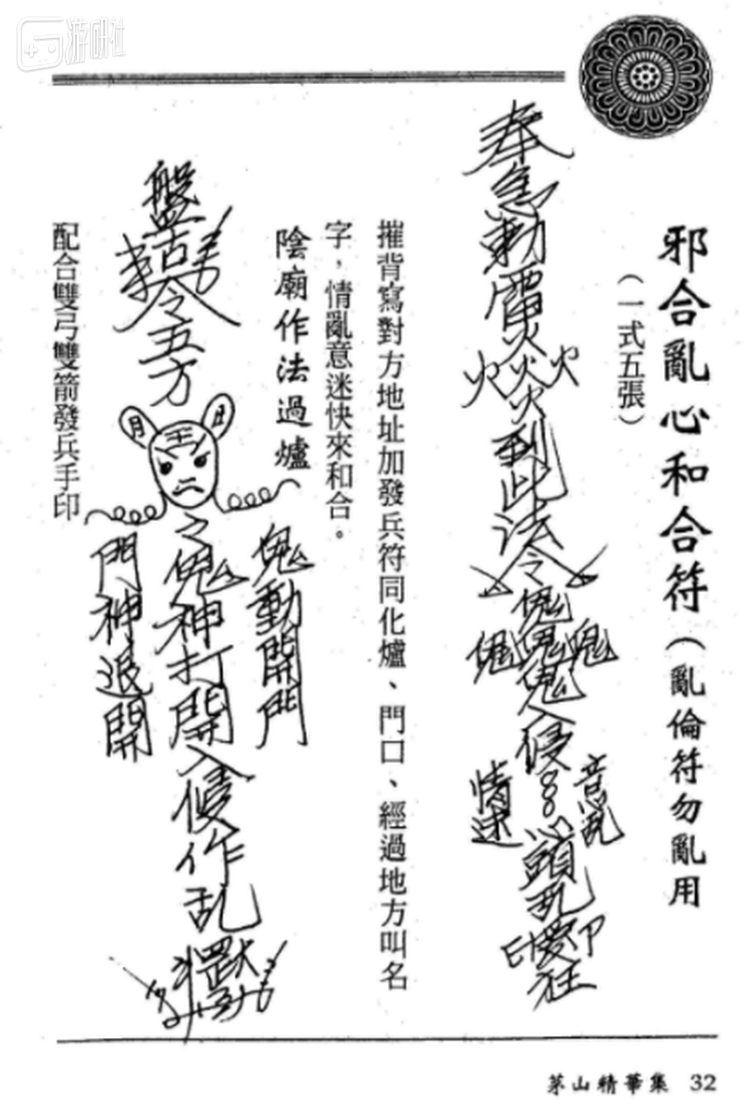 游研社
邪合亂心和合符（亂倫符勿亂用
（一式五張）
奉急勅雷火火火火火到此法令
入侵
意亂
情迷
頭乱
摧背寫對方地址加發兵符同化爐、門口、經過地方叫名
字，情亂意迷快來和合。
陰廟作法過爐
盤古
令五方
月
王
日
之鬼神打開
鬼動開門
門神退開
入侵作乱
配合雙弓雙箭發兵手印
茅山精華集 32